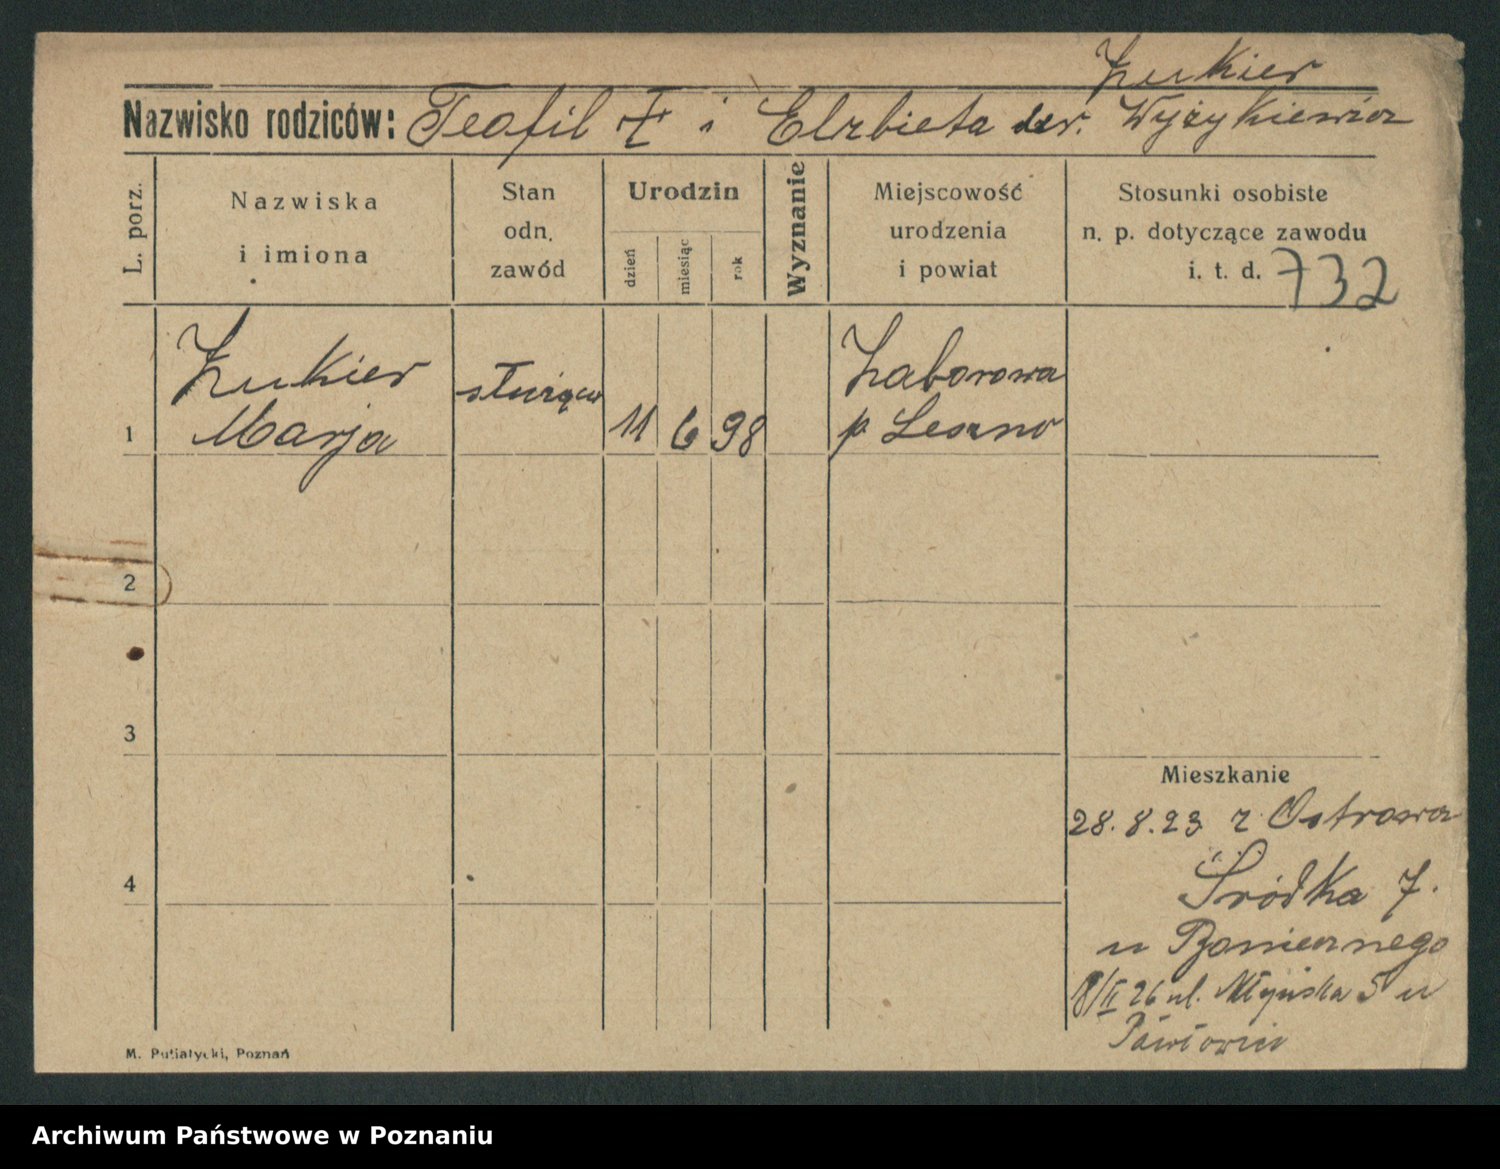 Żukier
Nazwisko rodziców: Teofil Ż i Elzbieta der. Wyżykiewicz
L. porz.
Nazwiska
i imiona
Stan
odn.
zawód
Urodzin
dzień
miesiąc
rok
Wyznanie
Miejscowość
urodzenia
i powiat
Stosunki osobiste
n. p. dotyczące zawodu
i. t. d. 732
1
Żukier
Marja
służąca
11
6
98
Zaborowa
p Leszno
2
3
4
Mieszkanie
28.8.23 z Ostrowa
Śródka 7.
u
8/II 26 ul. Młyńska 5 u
M. Putiatycki, Poznań
Archiwum Państwowe w Poznaniu